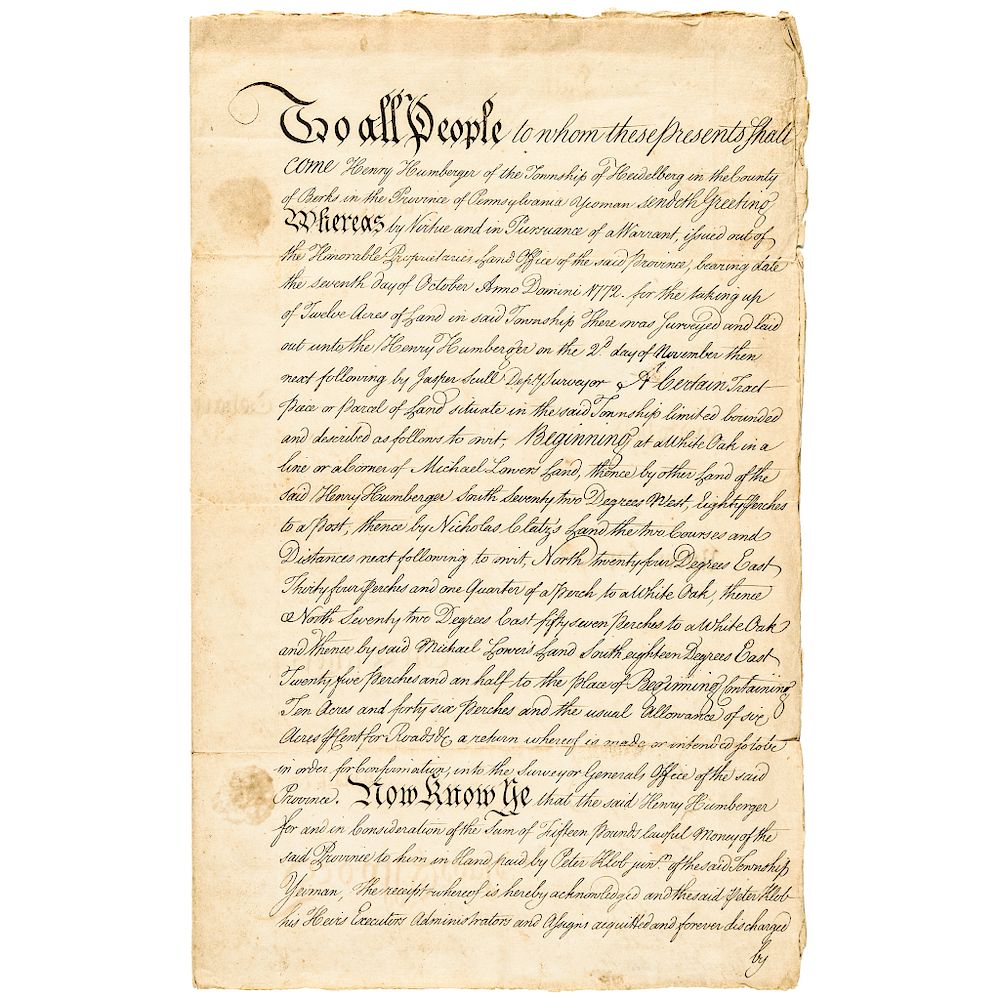 To all People to whom these Presents shall
come Henry Humberger of the Township of Heidelberg in the County
of Berks in the Province of Pennsylvania Yeoman sendeth Greeting
Whereas by Virtue and in Pursuance of a Warrant, issued out of
the Honorable Proprietaries Land Office of the said Province, bearing date
the seventh day of October Anno Domini 1772. for the taking up
of Twelve Acres of Land in said Township There was Surveyed and laid
out unto the Henry Humberger on the 2d. day of November then
next following by Jasper Scull Depy Surveyor A Certain Tract
Piece or Parcel of Land situate in the said Township limited bounded
and described as follows to wit, Beginning at a White Oak in a
line or a Corner of Michael Lower's Land, thence by other Land of the
said Henry Humberger South Seventy two Degrees West, Eighty Perches
to a Post, thence by Nicholas Cleatz's Land the two Courses and
Distances next following to wit, North twenty four Degrees East
Thirty four Perches and one Quarter of a Perch to a White Oak, thence
North Seventy two Degrees East fifty seven Perches to a White Oak
and thence by said Michael Lower's Land South eighteen Degrees East
Twenty five Perches and an half to the place of Beginning Containing
Ten Acres and forty six Perches and the usual Allowance of six
Acres P Cent for Roads &c a return whereof is made or intended so to be
in order for Confirmation, into the Surveyor Generals Office of the said
Province. Now Know Ye that the said Henry Humberger
for and in Consideration of the Sum of Fifteen Pounds lawful Money of the
said Province to him in Hand paid by Peter Klob junr. of the said Township
Yeoman, The receipt whereof is hereby acknowledged and the said Peter Klob
his Heirs Executors Administrators and Assigns acquitted and forever discharged
by